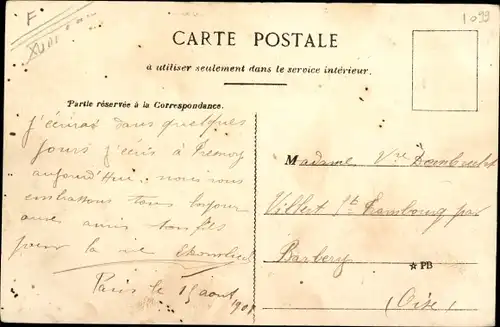 F
XVIII
1.099
CARTE POSTALE
à utiliser seulement dans le service intérieur.
Partie réservée à la Correspondance.
j'écrirai dans quelques
jours j'écris à
aujourd'Hui, nous vous
embrassons tous
pour la vie
Paris le 15 août 1901
Madame Vve
Villers St Frambourg par
Barbery
★ PB
(Oise)